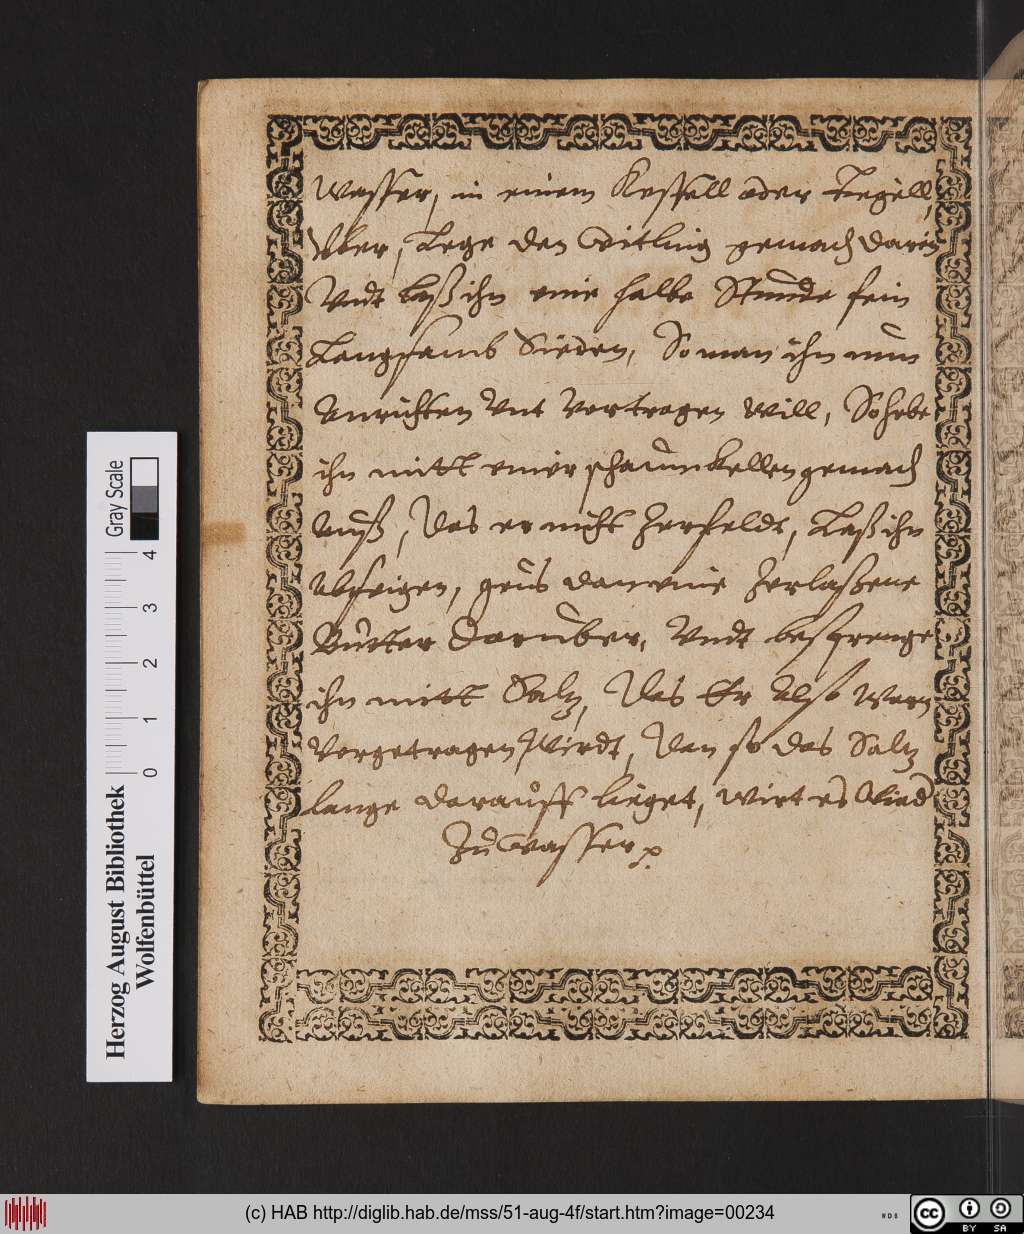 Wasser, in einem Kessell oder Tegell,
Vber, Lege den Witling gemach darin
Vndt laß ihn eine halbe Stunde fein
Langsamb Sieden, So man ihn nun
Anrichten Vnt Vortragen will, So hebe
ihn mitt einer schaumkellen gemach
Auß, Das er nicht Zerfeldt, Laß ihn
Abseigen, geus dan eine Zerlaßene
Butter daruber, Vndt besprenge
ihn mitt Saltz, Das Er Also Warm
Vorgetragen Wirdt, Dan so das Saltz
lange darauff lieget, wirt es Wied
Zu Wasser
Herzog August Bibliothek
Wolfenbüttel
0 1 2 3 4
Gray Scale
(c) HAB http://diglib.hab.de/mss/51-aug-4f/start.htm?image=00234
WDB
cc BY SA